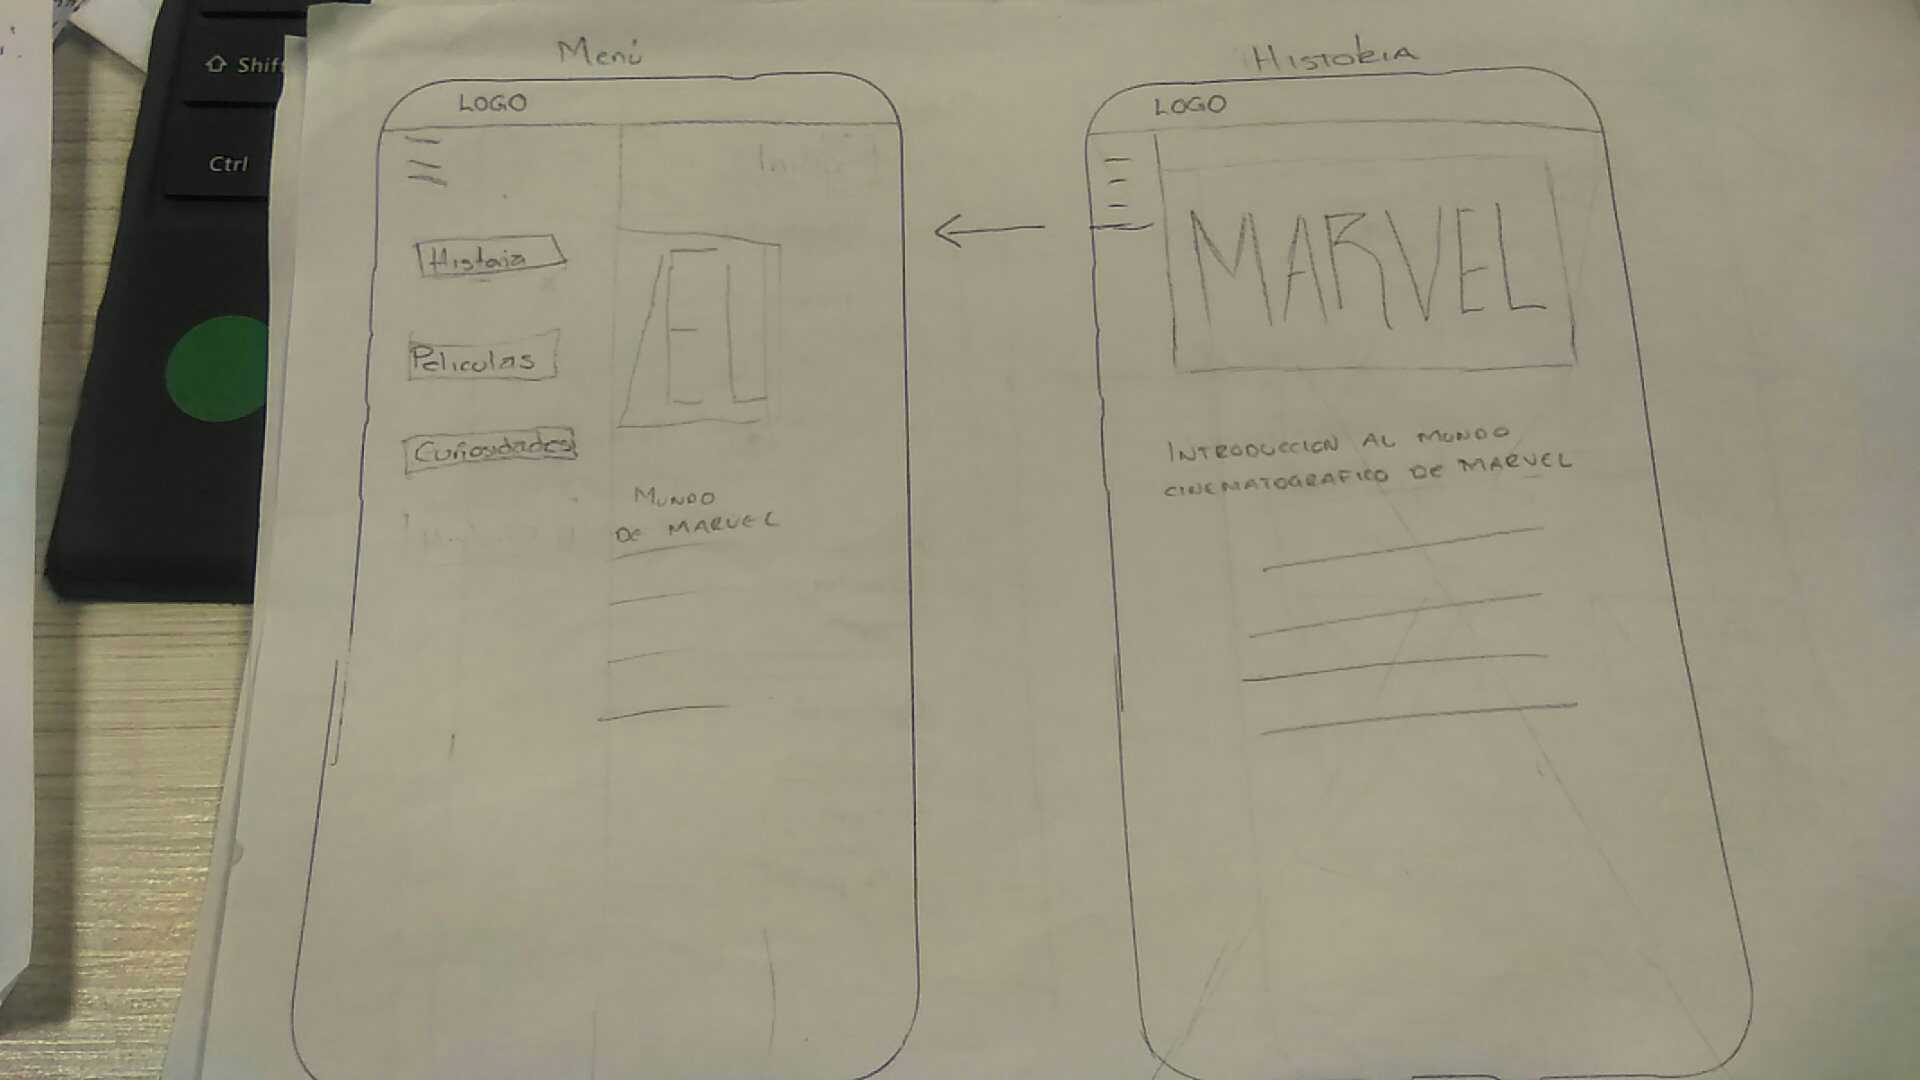 Shift
Ctrl
Menú
LOGO
Historia
Peliculas
Curiosidades
EL
MUNDO
DE MARVEL
HISTORIA
LOGO
MARVEL
INTRODUCCION AL MUNDO
CINEMATOGRAFICO DE MARVEL